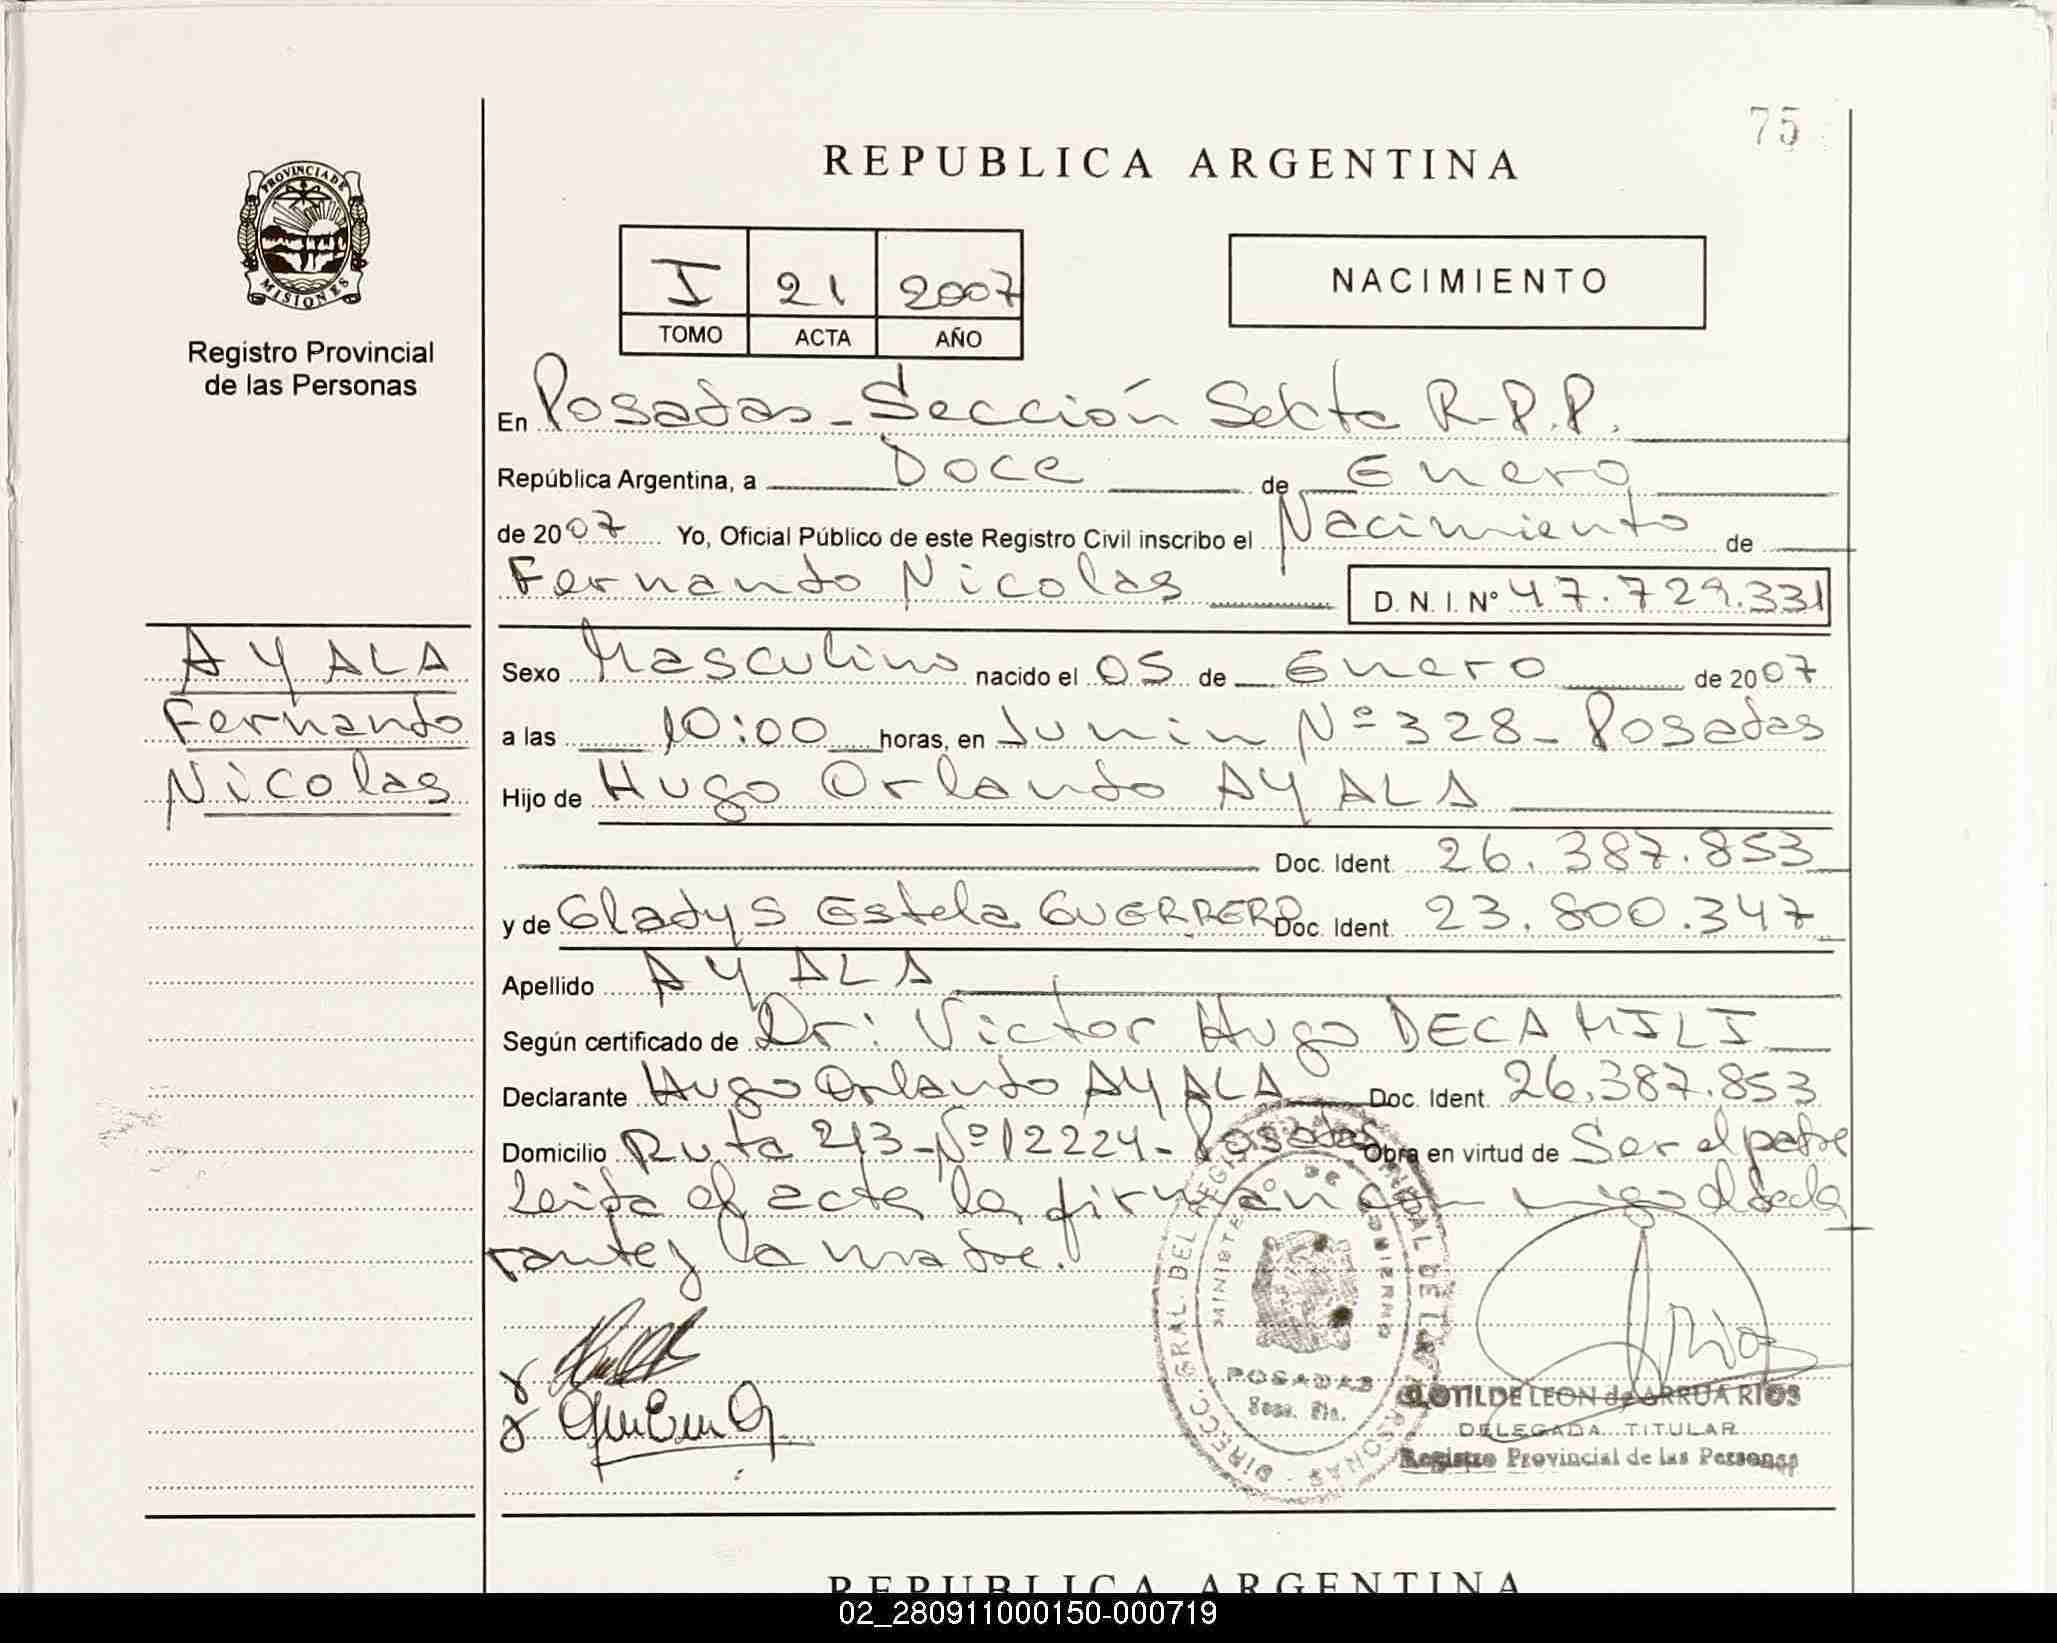 75
REPUBLICA ARGENTINA
PROVINCIA DE MISIONES
Registro Provincial
de las Personas
I 21 2007
TOMO ACTA AÑO
NACIMIENTO
En Posadas - Sección Sexta R.P.P.
República Argentina, a Doce de Enero
de 2007 Yo, Oficial Público de este Registro Civil inscribo el Nacimiento de
Fernando Nicolas D.N.I. Nº 47.729.331
AYALA
Fernando
Nicolas
Sexo Masculino nacido el 05 de Enero de 2007
a las 10:00 horas, en Junin Nº 328 - Posadas
Hijo de Hugo Orlando AYALA
Doc. Ident. 26.387.853
y de Gladys Estela GUERRERO Doc. Ident. 23.800.347
Apellido AYALA
Según certificado de Dr: Victor Hugo DECAMILI
Declarante Hugo Orlando AYALA Doc. Ident. 26.387.853
Domicilio Ruta 213 - Nº 12224 - Posadas Obra en virtud de Ser el padre
Leida el acta la firman con migo el decla
rante y la madre.
DIRECC. GRAL. DEL REGISTRO PROVINCIAL DE LAS PERSONAS
MINISTERIO DE GOBIERNO
POSADAS
Rios
CLOTILDE LEON de ARRUA RIOS
DELEGADA TITULAR
Registro Provincial de las Personas
REPUBLICA ARGENTINA
02_280911000150-000719